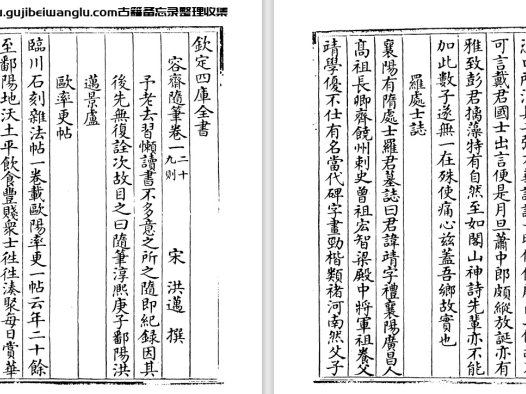 u.gujibeiwanglu.com古籍备忘录整理收集
欽定四庫全書
容齋隨筆卷一 二十九則 宋 洪邁 撰
予老去習懶讀書不多意之所之隨即紀錄因其
後先無復詮次故目之曰隨筆淳熙庚子鄱陽洪
邁景盧
歐率更帖
臨川石刻雜法帖一卷載歐陽率更一帖云年二十餘
至鄱陽地沃土平飲食豐賤衆士往往湊聚每日賞華
可言戴君國士出言便是月旦蕭中郎頗縱放誕亦有
雅致彭君摛藻特有自然至如閣山神詩先輩亦不能
加此數子遂無一在殊使痛心茲蓋吾鄉故實也
羅處士誌
襄陽有隋處士羅君墓誌曰君諱靖字禮襄陽廣昌人
高祖長卿齊饒州刺史曾祖宏智梁殿中將軍祖養父
靖學優不仕有名當代碑字畫勁楷類褚河南然父子